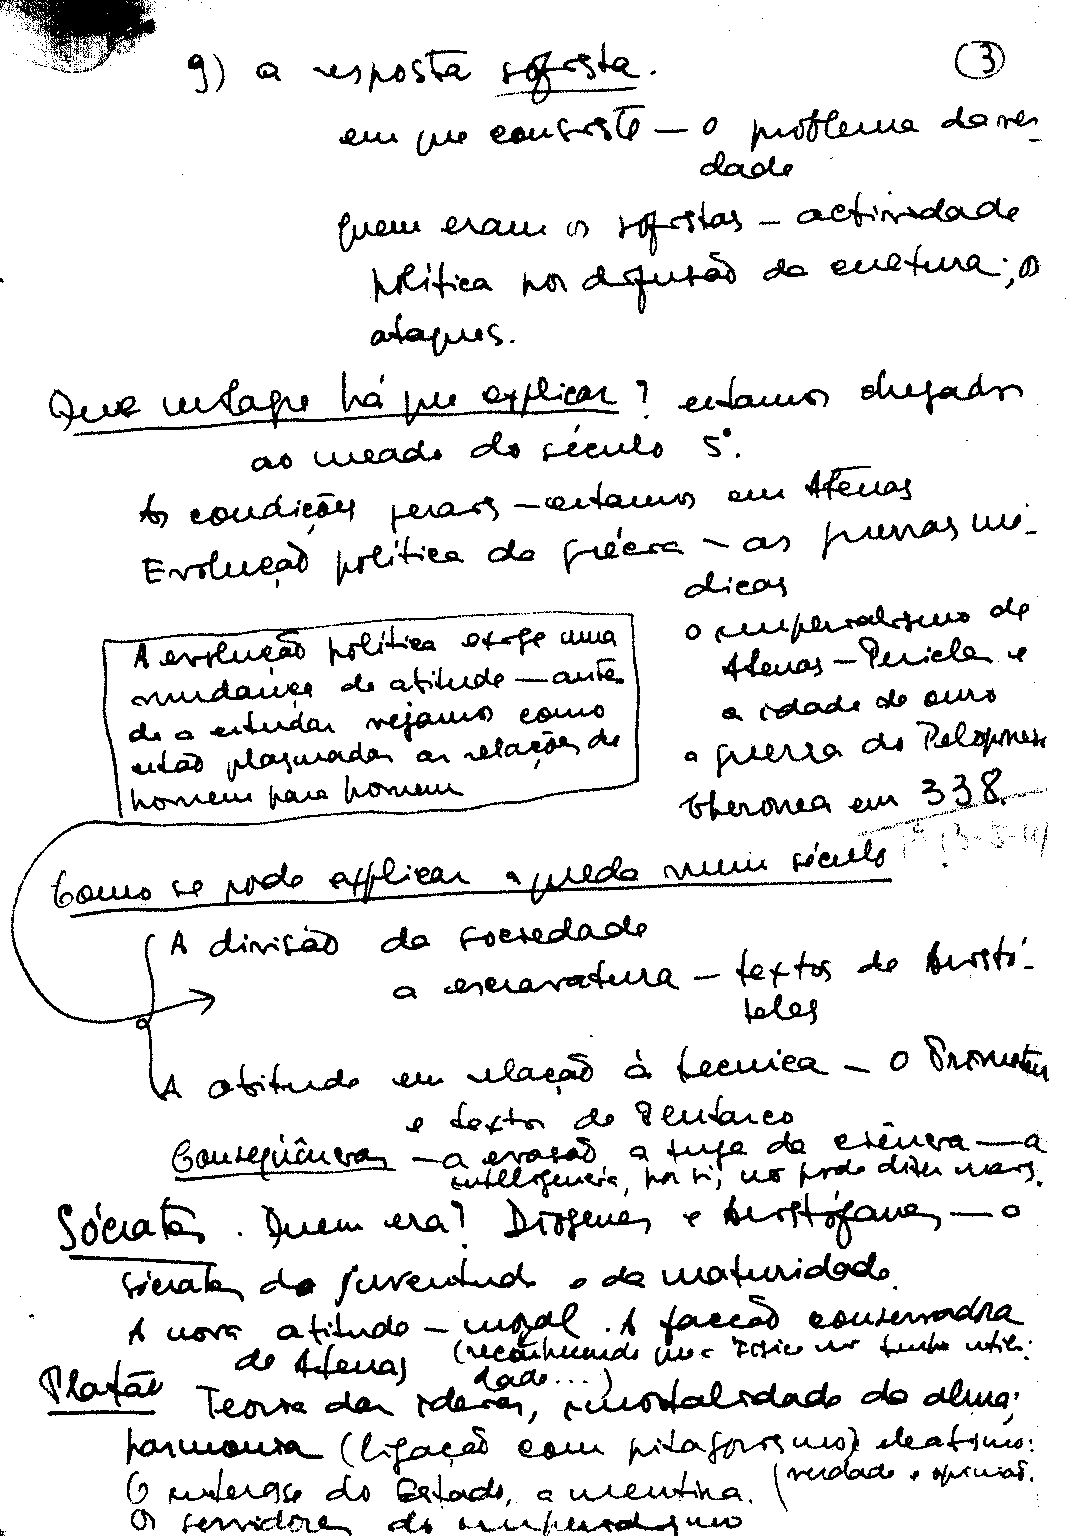 g) a resposta sofista.
③
em que consiste — o problema da ver-
dade
quem eram os sofistas — actividade
política por difusão da cultura; os
ataques.
Que milagre há que explicar? estamos chegados
ao meado do século 5º.
As condições gerais — estamos em Atenas
Evolução política da Grécia — as guerras mé-
dicas
o imperialismo de
Atenas — Pericles e
a idade de ouro
a guerra do Peloponeso
Cheronea em 338.
A evolução política exige uma
mudança de atitude — antes
de a estudar vejamos como
estão plasmadas as relações de
homem para homem
Como se pode explicar a queda num século
A divisão da sociedade
a escravatura — textos de Aristó-
teles
A atitude em relação à técnica — o Prometeu
e textos de Plutarco
Consequências — a evasão a fuga da ciência — a
inteligência, por si, não pode dizer mais.
Sócrates. Quem era? Diógenes e Aristófanes — o
Sócrates da juventude e da maturidade.
A nova atitude — moral. A facção conservadora
de Atenas (reconhecendo que a Física não tinha utili-
dade...)
Platão Teoria das ideias, imortalidade da alma;
harmonia (ligação com pitagorismo) eleatismo:
(verdade e opinião.
O interesse do Estado, a mentira.
Os servidores do imperialismo